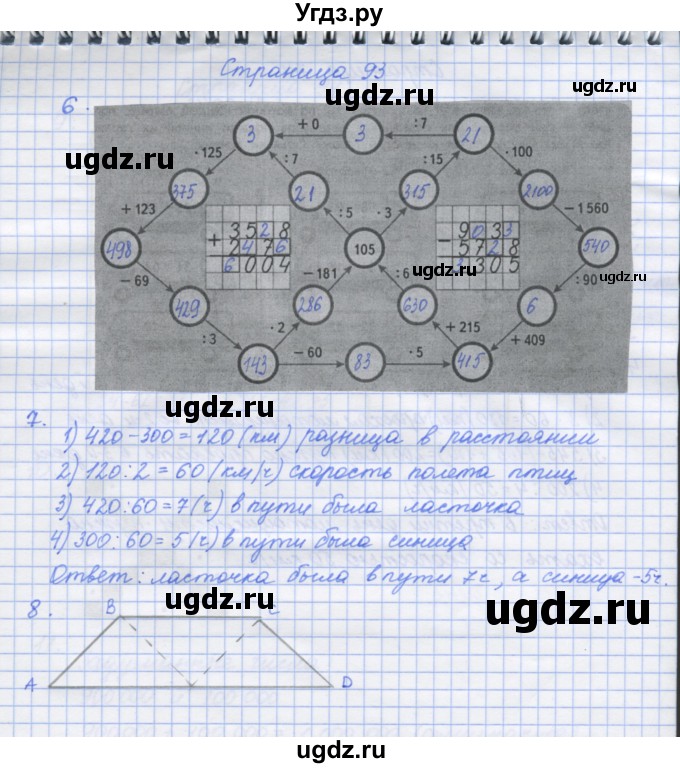 Угдз.ру
Страница 93
ugdz.ru ugdz.ru
6.
3 + 0 3 : 7 21
· 125 : 7 : 15 · 100
375 21 315 2100
+ 123 : 5 · 3 − 1 560
498 105 540
+ 3528
2476
6004
− 9033
5728
3305
− 69 − 181 : 6 : 90
429 286 630 6
: 3 · 2 + 215 + 409
143 − 60 83 · 5 415
ugdz.ru ugdz.ru
ugdz.ru ugdz.ru
7.
1) 420 − 300 = 120 (км) разница в расстоянии
2) 120 : 2 = 60 (км/ч) скорость полета птиц
3) 420 : 60 = 7 (ч) в пути была ласточка
4) 300 : 60 = 5 (ч) в пути была синица
Ответ: ласточка была в пути 7ч, а синица - 5ч.
ugdz.ru ugdz.ru
8.
B C
A D
ugdz.ru